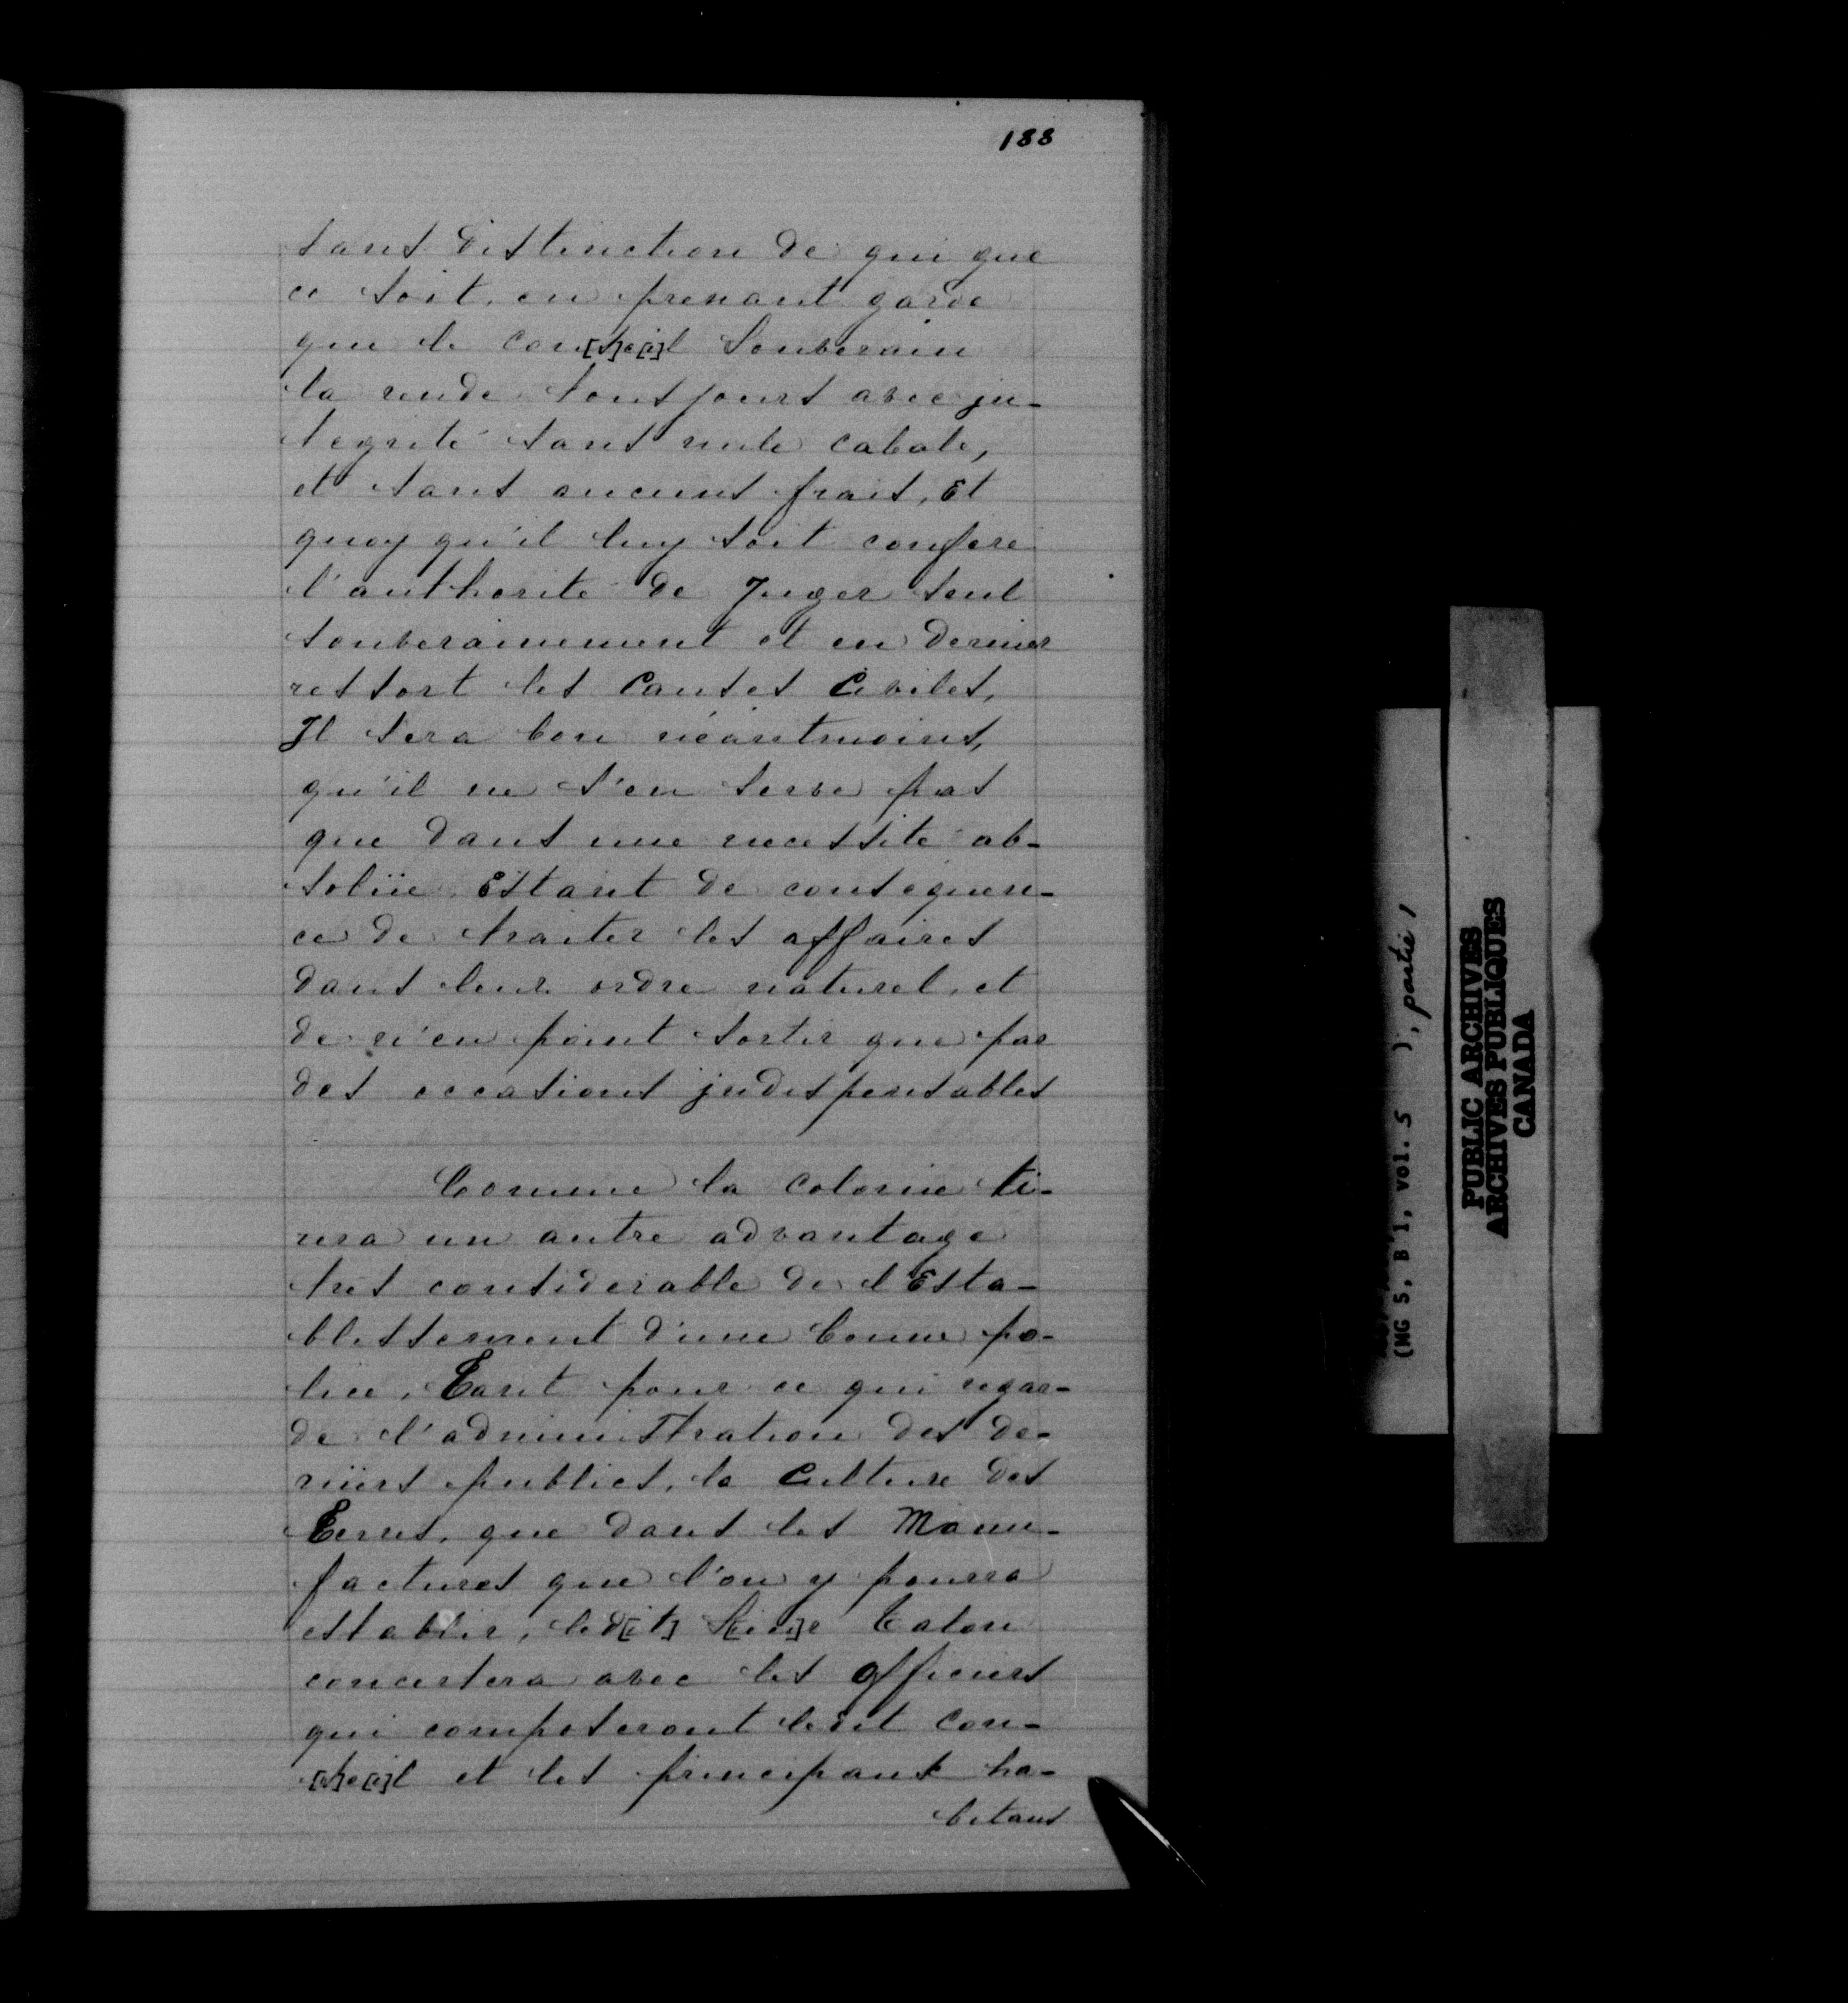 188
sans distinction de qui que
ce soit, en prenant garde
que le con[s]e[i]l Souverain
la rende tousjours avec jn-
tegrité sans nule cabale,
et sans aucuns frais, Et
quoy qu'il luy soit conferé
l'authorité de Juger seul
souverainement et en dernier
ressort les Causes Civiles,
Jl sera bon néantmoins,
qu'il ne s'en serve pas
que dans une necessité ab-
solüe, Estant de consequen-
ce de traiter les affaires
dans leur ordre naturel, et
de n'en point sortir que par
des occasions jndispensables
Comme la colonie ti-
rera un autre advantage
tres considerable de l'Esta-
blissement d'une bonne po-
lice, Tant pour ce qui regar-
de l'administration des de-
niers publics, la Culture des
Terres, que dans les Manu-
factures que l'on y pourra
establir, led[it] S[ieu]r Talon
concertera avec les officiers
qui composeront ledit con-
[s]e[i]l et les principaux ha-
bitans
(MG 5, B 1, vol. 5 ), partie 1
PUBLIC ARCHIVES
ARCHIVES PUBLIQUES
CANADA